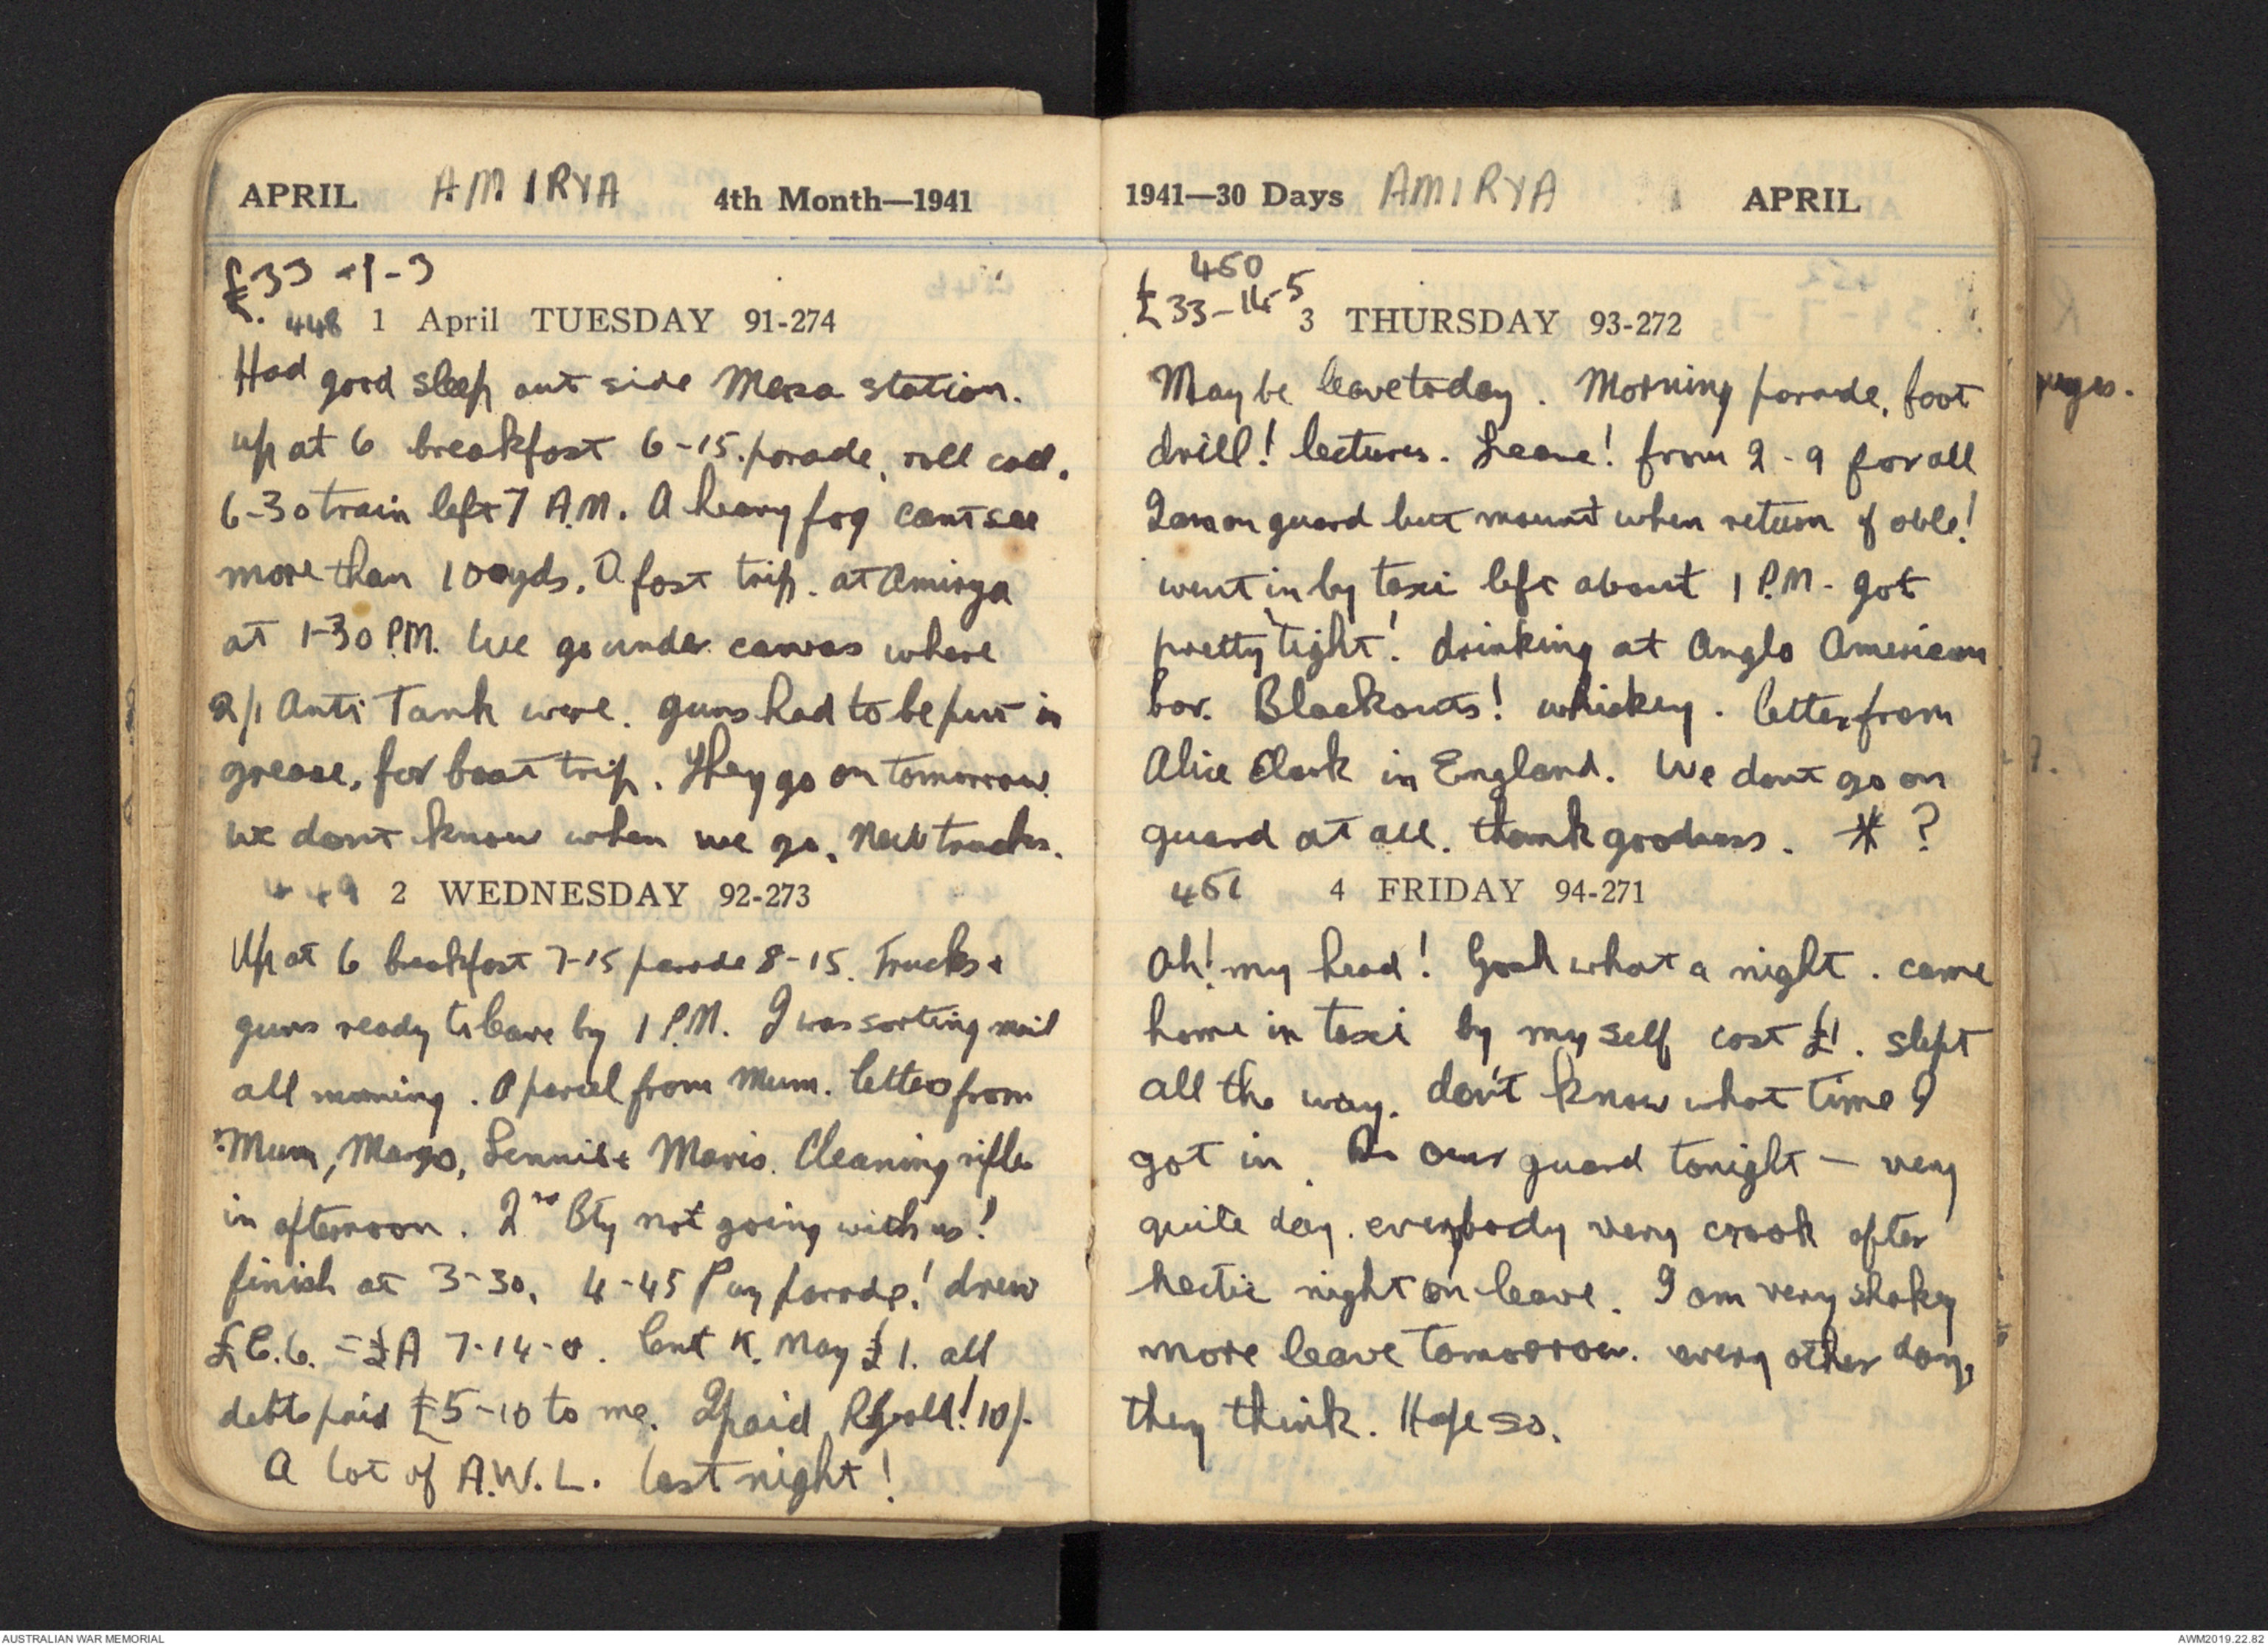 APRIL AMIRYA 4th Month—1941
£33-1-3
448 1 April TUESDAY 91-274
Had good sleep out side Mersa station.
up at 6 breakfast 6-15. parade, roll call.
6-30 train left 7 A.M. A heavy fog cant see
more than 100yds. A fast trip. at Amirya
at 1-30 P.M. We go under canvas where
2/1 Anti Tank were. guns had to be put in
grease, for boat trip. They go on tomorrow.
we dont know when we go. New trucks.
449 2 WEDNESDAY 92-273
Up at 6 breakfast 7-15 parade 8-15. Trucks +
guns ready to leave by 1 P.M. I was sorting mail
all morning. A parcel from Mum. letters from
Mum, Margo, Lennie + Mavis. Cleaning rifles
in afternoon. 2nd Bty not going with us!
finish at 3-30. 4-45 Pay parade! drew
£E.6. = £A 7-14-0. lent K. May £1. all
debts paid £5-10 to me. I paid 10/-
A lot of A.W.L. last night!
1941—30 Days AMIRYA APRIL
450
£33-14-5 3 THURSDAY 93-272
May be leave today. Morning parade, foot
drill! lectures. Leave! from 2-9 for all
I am on guard but mount when return if able!
went in by taxi left about 1 P.M. got
pretty tight! drinking at Anglo American
bar. Blackouts! whiskey. letter from
Alice Clark in England. We dont go on
guard at all. thank goodness. * ?
451 4 FRIDAY 94-271
Oh! my head! Gosh what a night. came
home in taxi by my self cost £1. slept
all the way. don't know what time I
got in. Do our guard tonight — very
quite day. everybody very crook after
hectic night on leave. I am very shaky
more leave tomorrow. every other day,
they think. Hope so.
AUSTRALIAN WAR MEMORIAL
AWM2019.22.82